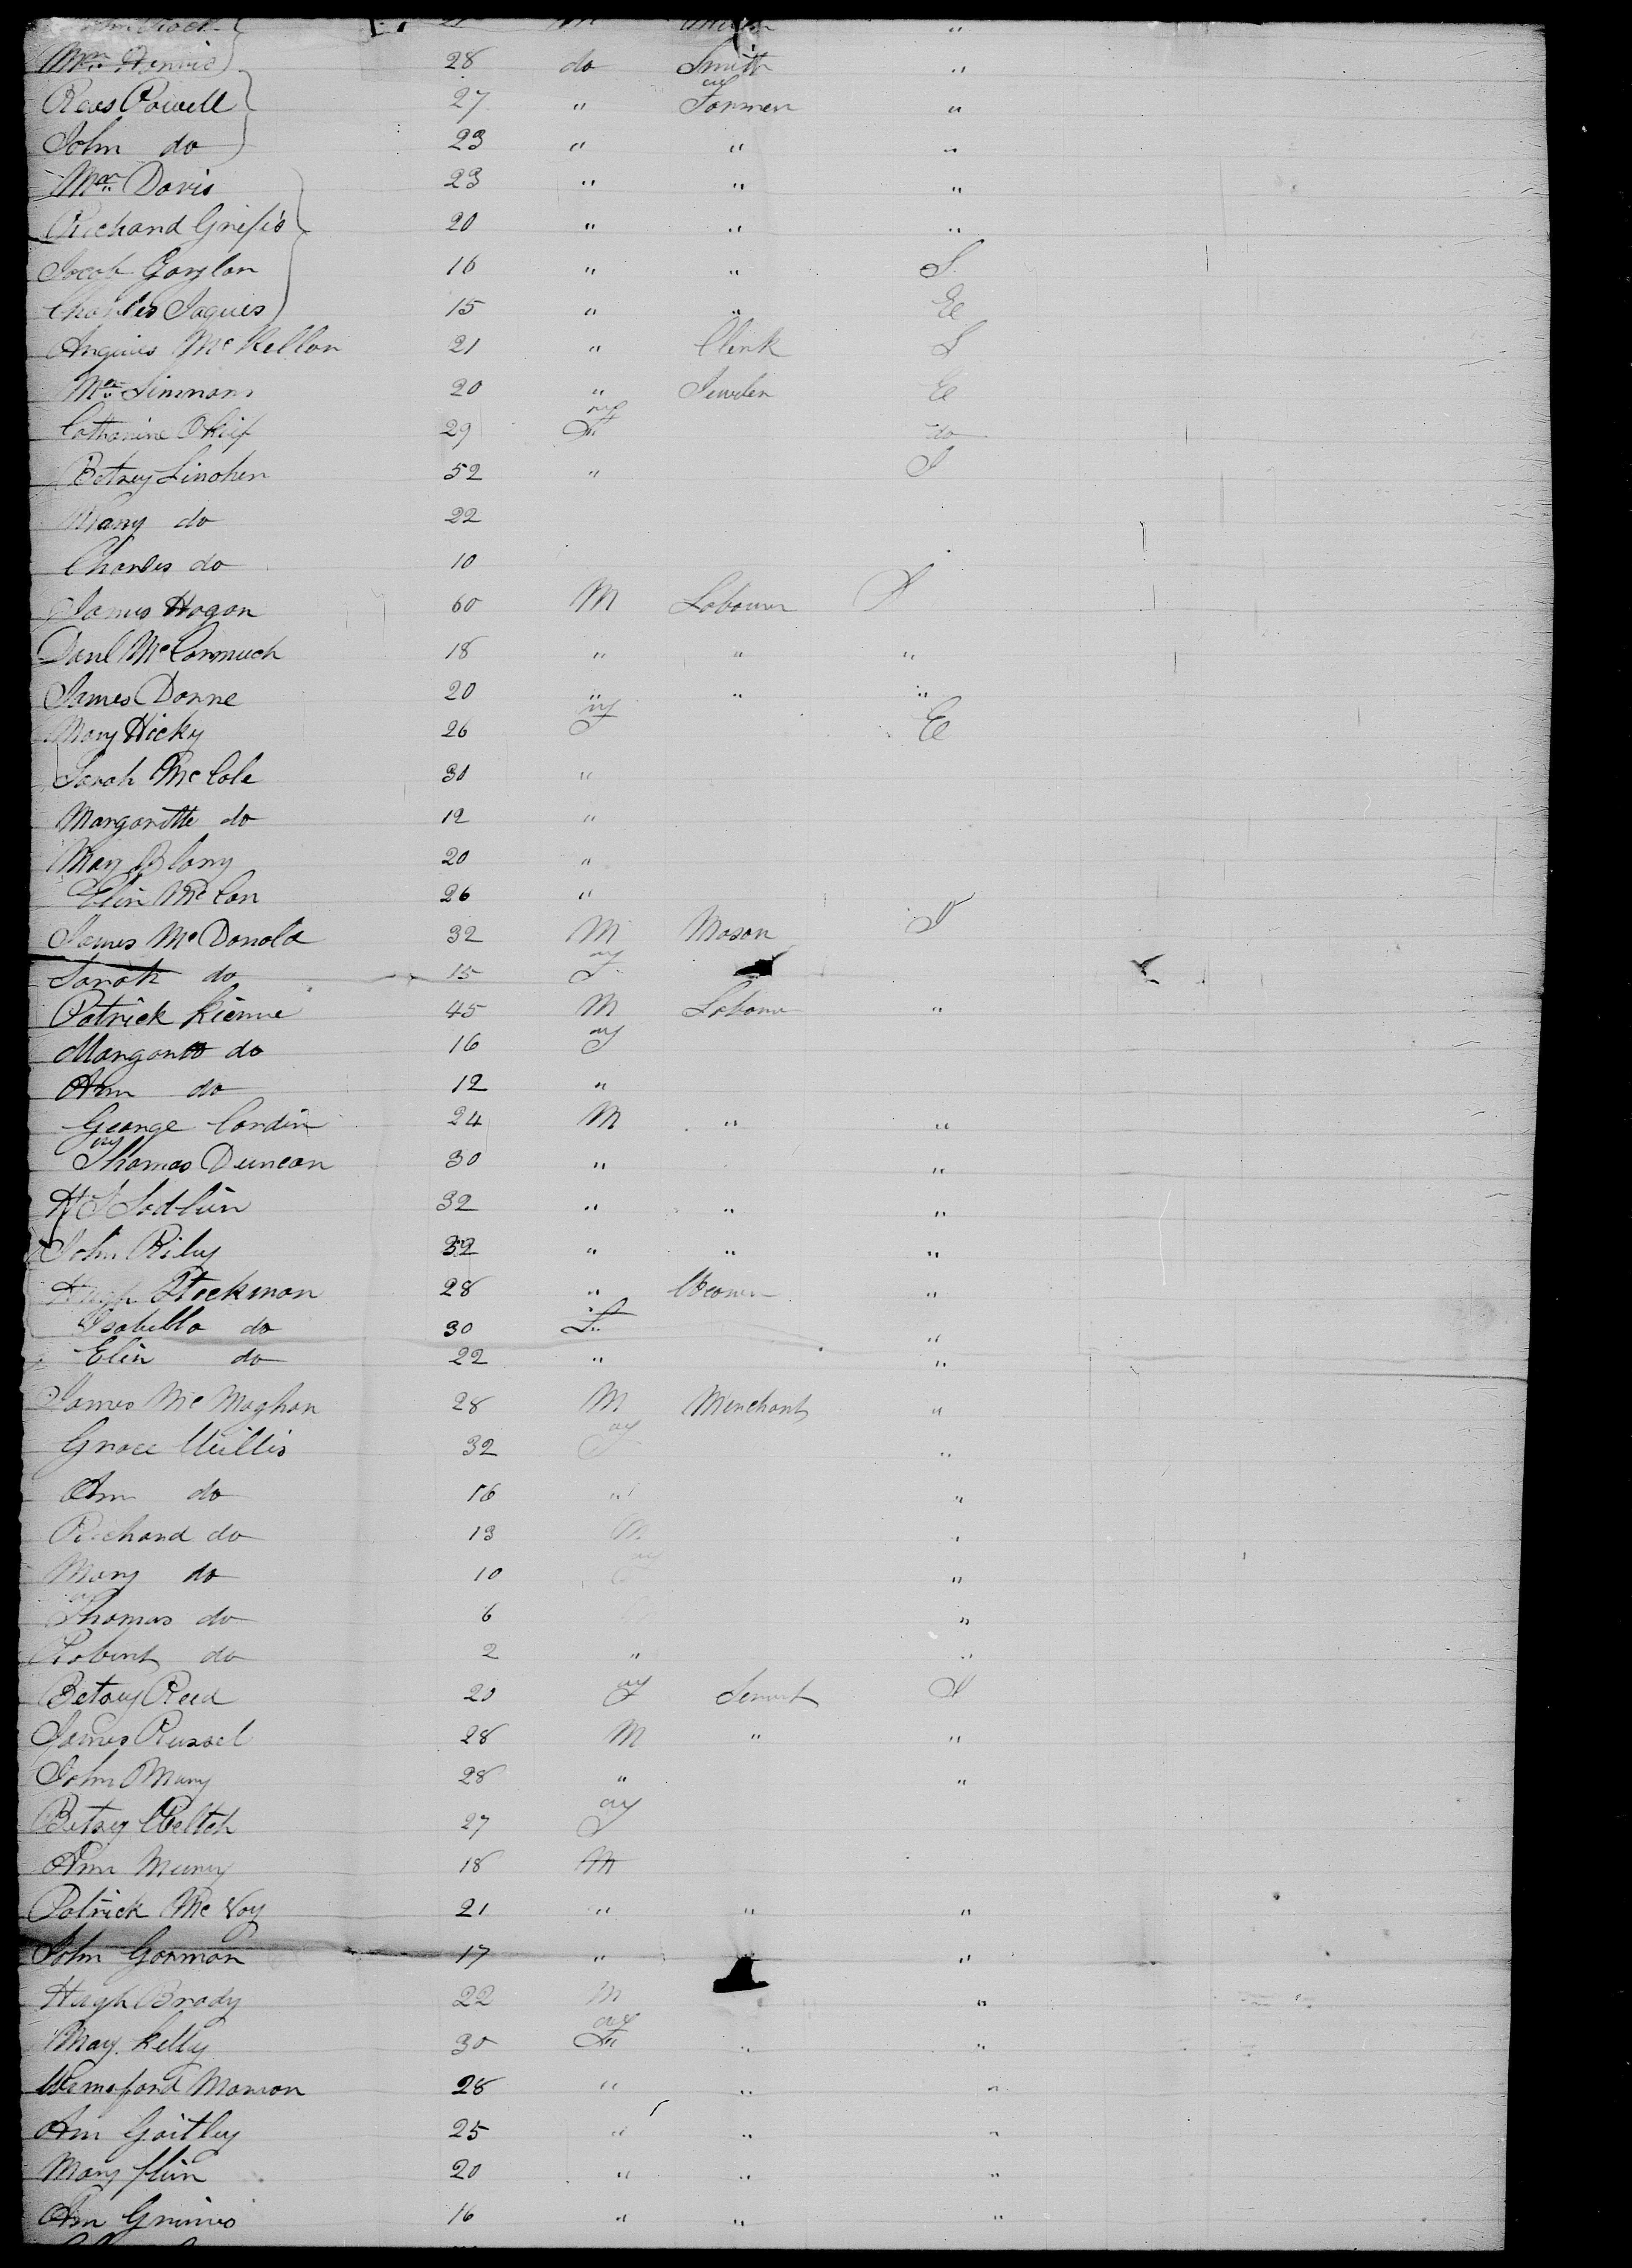 28 do Smith "
Rees Powell 27 " Farmer "
John do 23 " " "
Wm Davis 23 " " "
Richard Grifis 20 " " "
Jacob 16 " " S
Charles Jaques 15 " " E
Angues McKellar 21 " Clerk S
Wm Simmons 20 " Juwler E
Catharine Okief 29 F do
Betsey Linohen 52 " I
Mary do 22
Charles do 10
James Hogan 60 M Labourer I
Danl McCormuch 18 " " "
James Donne 20 " " "
Mary Hicky 26 F E
Sarah McCole 30 "
Margaritte do 12 "
Mary Blany 20 "
Elin McCan 26 "
James McDonold 32 M Mason I
Sarah do 15 F
Patrick Kienne 45 M Labour "
Margaret do 16 F
Ann do 12 "
George Cardin 24 M " "
Thomas Duncan 30 " "
32 " " "
John Riley 32 " " "
Hugh Stockman 28 " Weaver "
Isabella do 30 F "
Elin do 22 " "
James McMaghan 28 M Merchant "
Grace Willis 32 F "
Ann do 16 " "
Richard do 13 M "
Mary do 10 F "
Thomas do 6 "
Robert do 2 " "
Betsey Reed 20 F Servent I
James Russel 28 M " "
John Mury 28 " "
Betsey Weltch 27 F
Ann Murey 18 M
Patrick McVoy 21 " " "
John Gorman 17 " "
Hugh Brady 22 M "
Mary Kelly 30 F " "
Wemeford Manion 28 " " "
Ann Gaitley 25 " " "
Mary flin 20 " " "
Ann Grimes 16 " " "